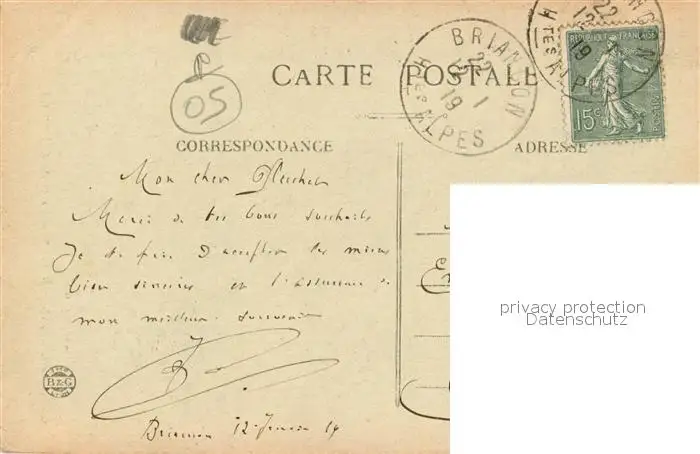 05
CARTE POSTALE
BRIANÇON
22
1
19
Htes ALPES
Htes ALPES
22
19
REPUBLIQUE FRANÇAISE
15c
POSTES
CORRESPONDANCE
ADRESSE
Mon cher
Merci de tes bons souhaits
Je te prie d'accepter les miens
bien sincères et l'assurance de
mon meilleur souvenir
B&G
LYON
Briançon 12 Janvier 19
privacy protection
Datenschutz